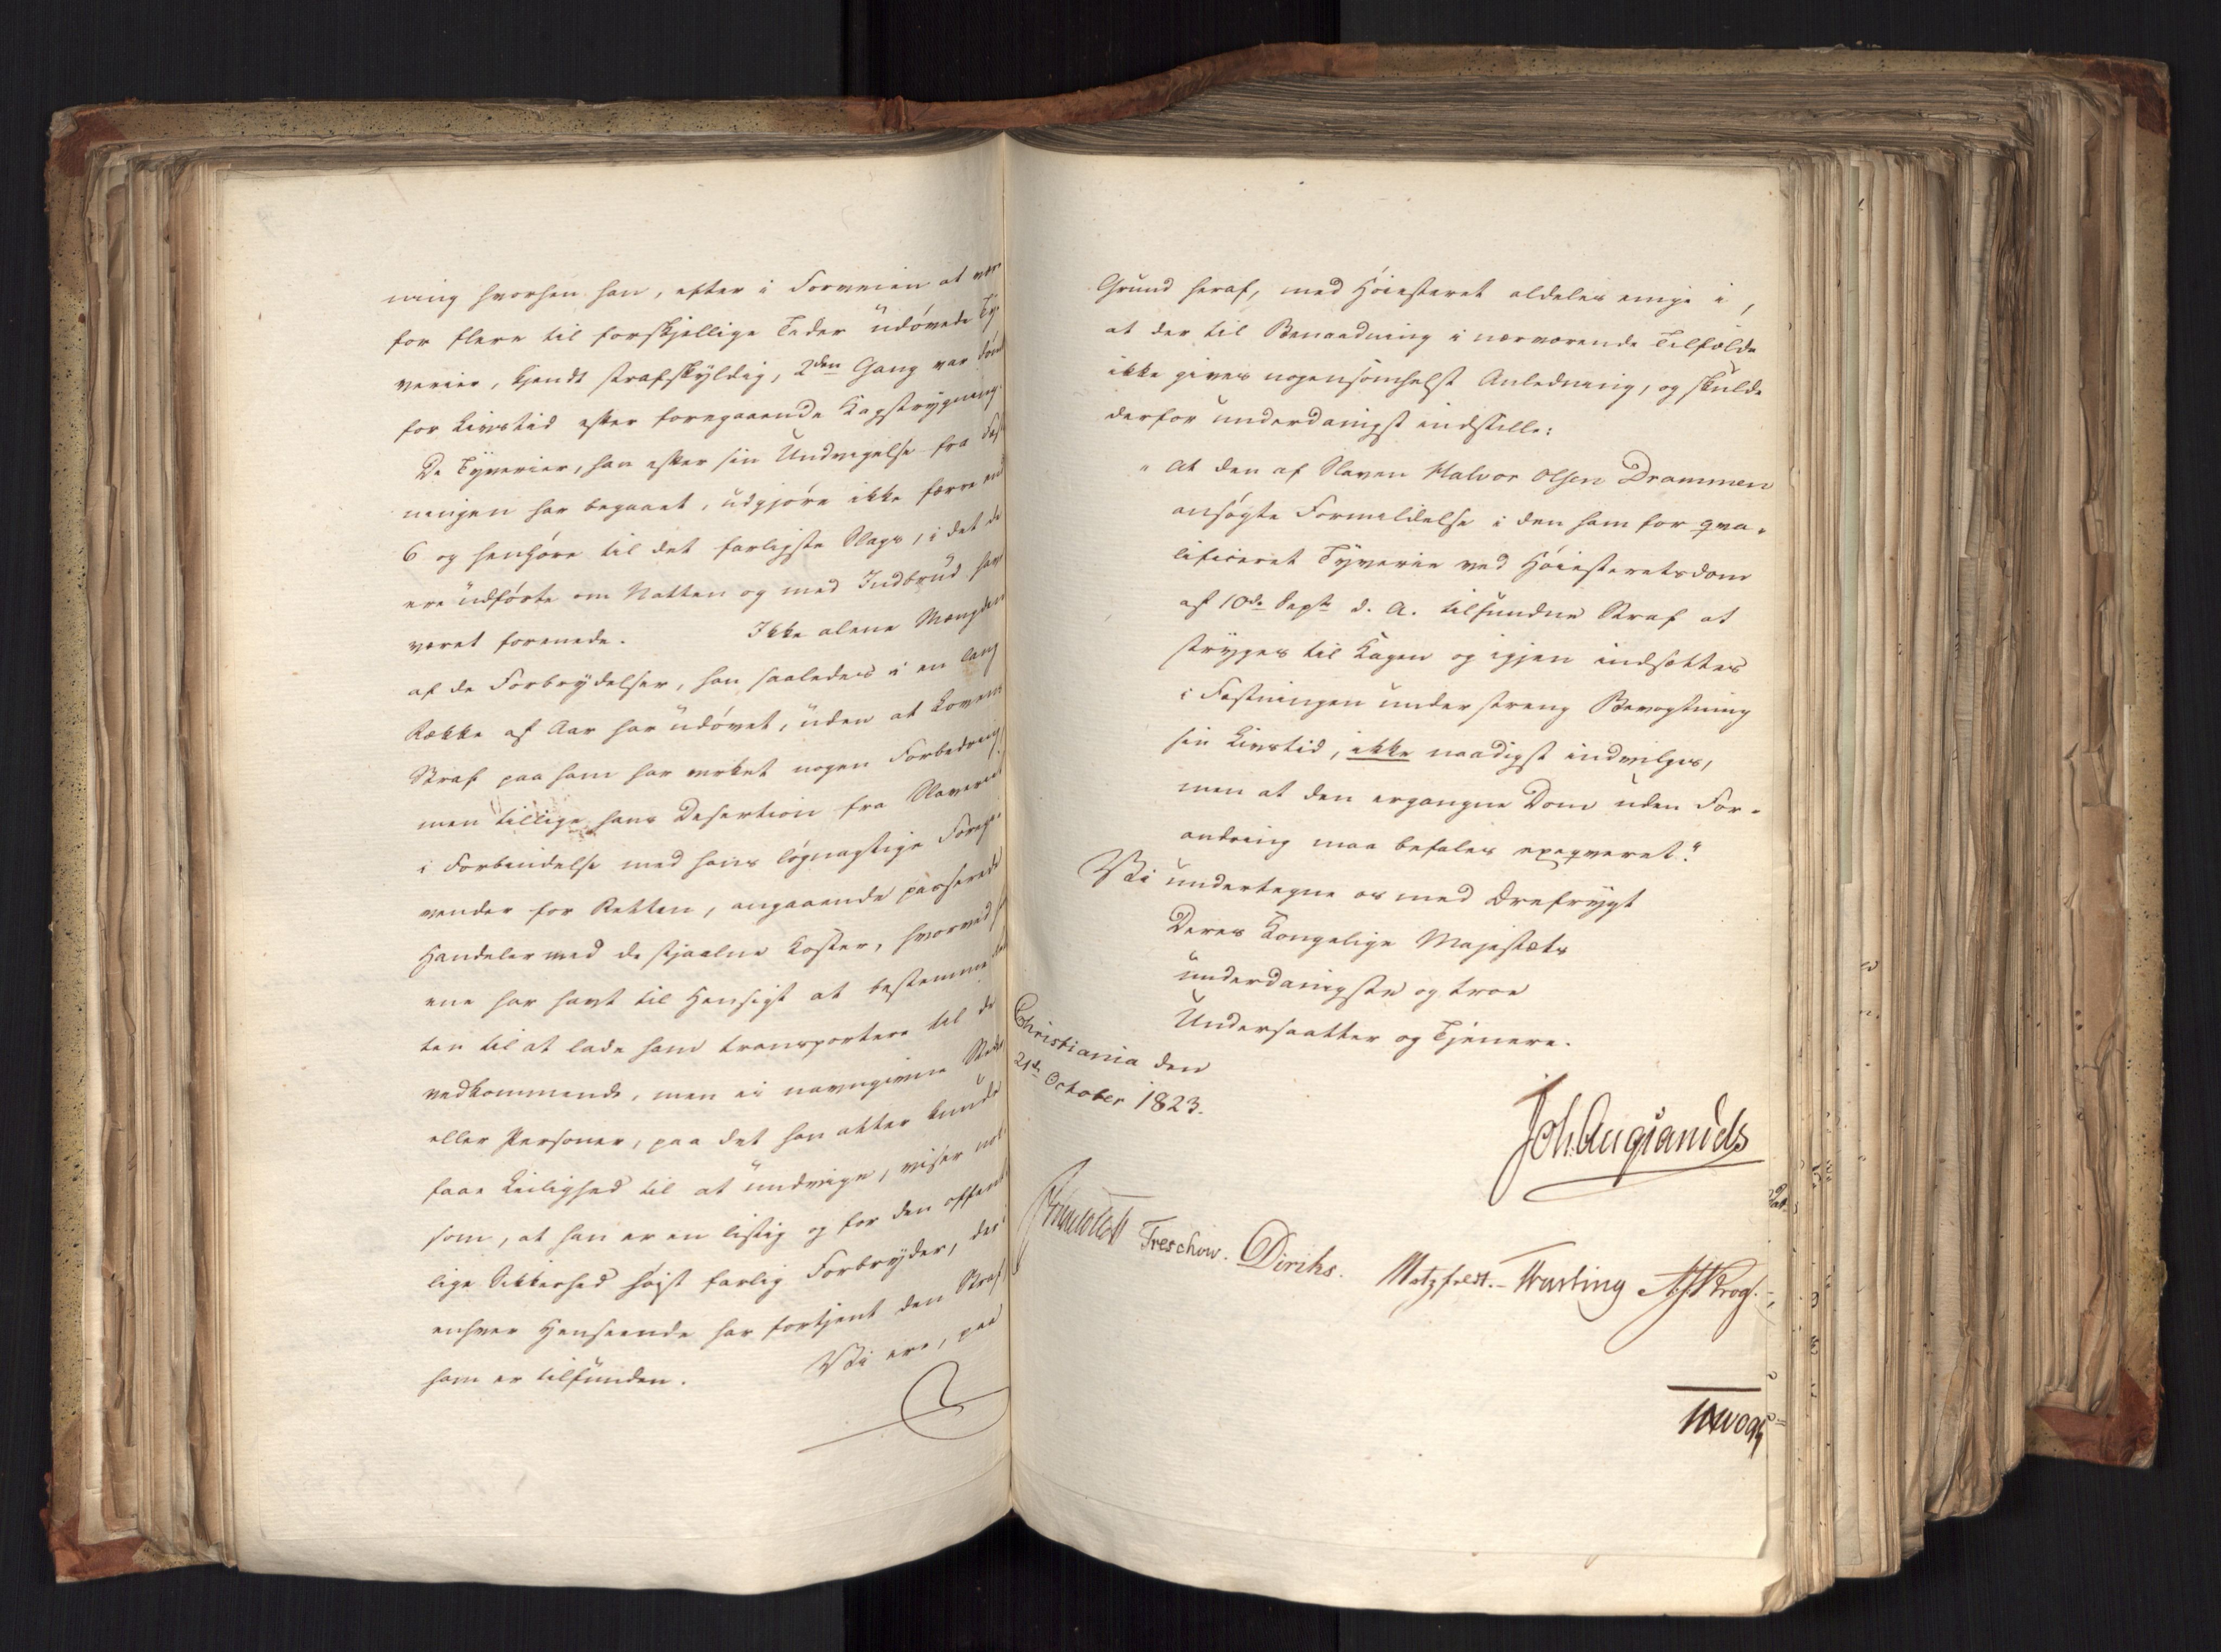 ning hvorhen han, efter i Forveien at vær
for flere til forskjellige Tider udøvede Ty
verier, kjendt strafskyldig, 2den Gang var dømt
for Livstid efter foregaaende Kagstrygning.
De Tyverier, han efter sin Undvigelse fra Fæst
ningen har begaaet, udgjøre ikke færre end
6 og henhøre til det farligste Slags, i det de
ere udførte om Natten og med Indbrud have
været forenede. Ikke alene Mængden
af de Forbrydelser, han saaledes i en lang
Række af Aar har udøvet, uden at Lovens
Straf paa ham har virket nogen Forbedring,
men tillige hans Desertion fra Slaveriet
i Forbindelse med hans løgnagtige Foregi-
vender for Retten, angaaende passerede
Handeler med de stjaalne Koster, hvorved
ene har havt til Hensigt at bestemme
ten til at lade ham transportere til de
vedkommende, men ei navngivne Steder
eller Personer, paa det han atter kunde
faae Leilighed til at undvige, viser nok-
som, at han er en listig og for den offent
lige Sikkerhed høist farlig Forbryder, der i
enhver Henseende har fortjent den Straf
ham er tilfunden. Vi ere, paa
Grund heraf, med Høiesteret aldeles enige i,
at der til Benaadning i nærværende Tilfælde
ikke gives nogensomhelst Anledning, og skulde
derfor underdanigst indstille:
"At den af Slaven Halvor Olsen Drammen
ansøgte Formildelse i den ham for qva-
lificeret Tyverie ved Høiesteretsdom
af 10de Septr d. A. tilfundne Straf at
stryges til Kagen og igjen indsættes
i Fæstningen under streng Bevogtning
sin Livstid, ikke naadigst indvilges,
men at den ergangne Dom uden For-
andring maa befales exeqveret."
Vi undertegne os med Ærefrygt
Deres Kongelige Majestæts
underdanigste og troe
Undersaatter og Tjenere.
Christiania den
21de October 1823.
Joh. Aug Sandels
Treschow. Diriks. Motzfeldt. Krog.